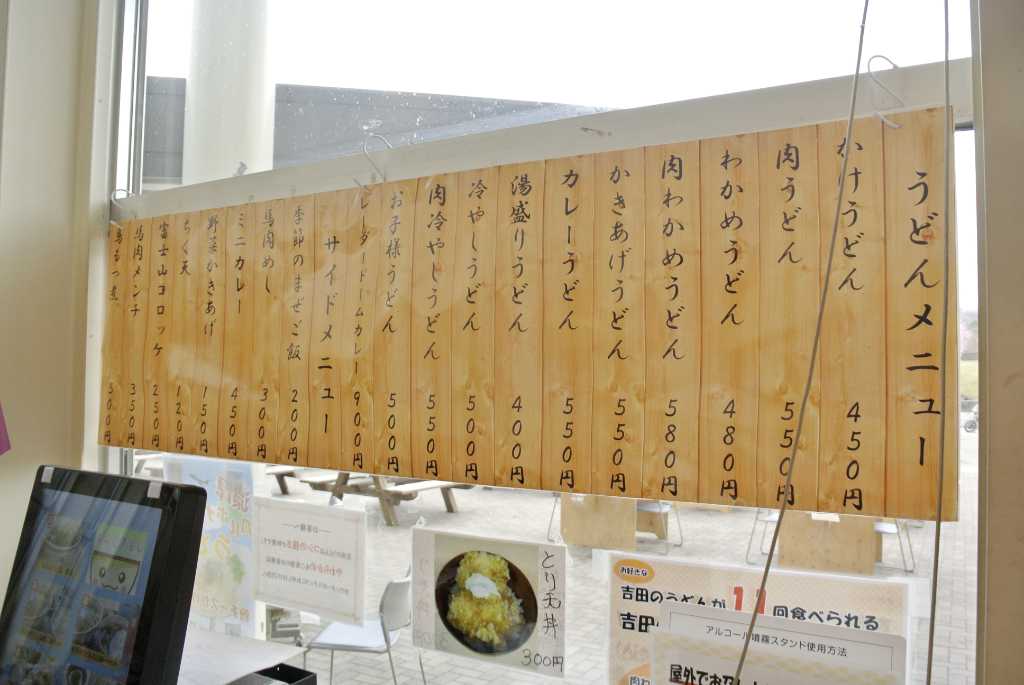 うどんメニュー
かけうどん 450円
肉うどん 550円
わかめうどん 480円
肉わかめうどん 580円
かきあげうどん 550円
カレーうどん 550円
湯盛りうどん 400円
冷やしうどん 500円
肉冷やしうどん 550円
お子様うどん 500円
レーダードームカレー 900円
サイドメニュー
季節のまぜご飯 200円
馬肉めし 300円
ミニカレー 450円
野菜かきあげ 150円
ちく天 120円
富士山コロッケ 250円
馬肉メンチ 350円
馬もつ煮 500円
とり天丼
300円
お好きな
吉田のうどんが11回食べられる
吉田
アルコール噴霧スタンド使用方法
屋外で